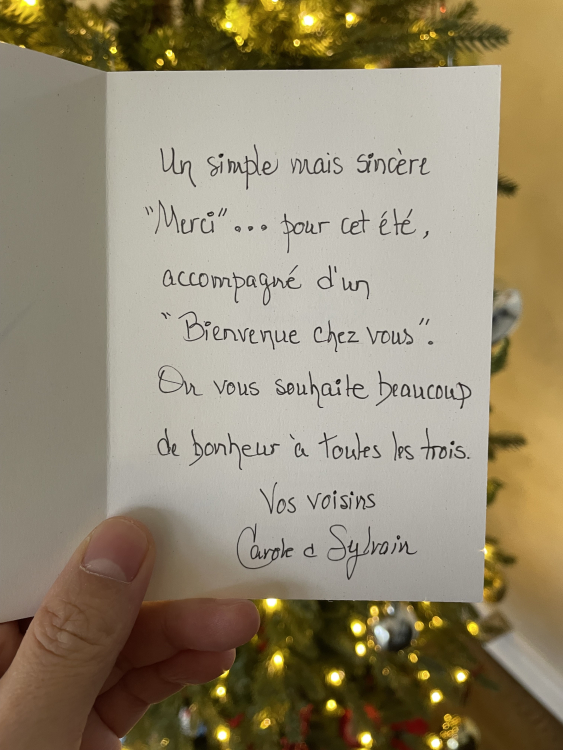 Un simple mais sincère
"Merci"... pour cet été,
accompagné d'un
"Bienvenue chez vous".
On vous souhaite beaucoup
de bonheur à toutes les trois.
Vos voisins
Carole & Sylvain